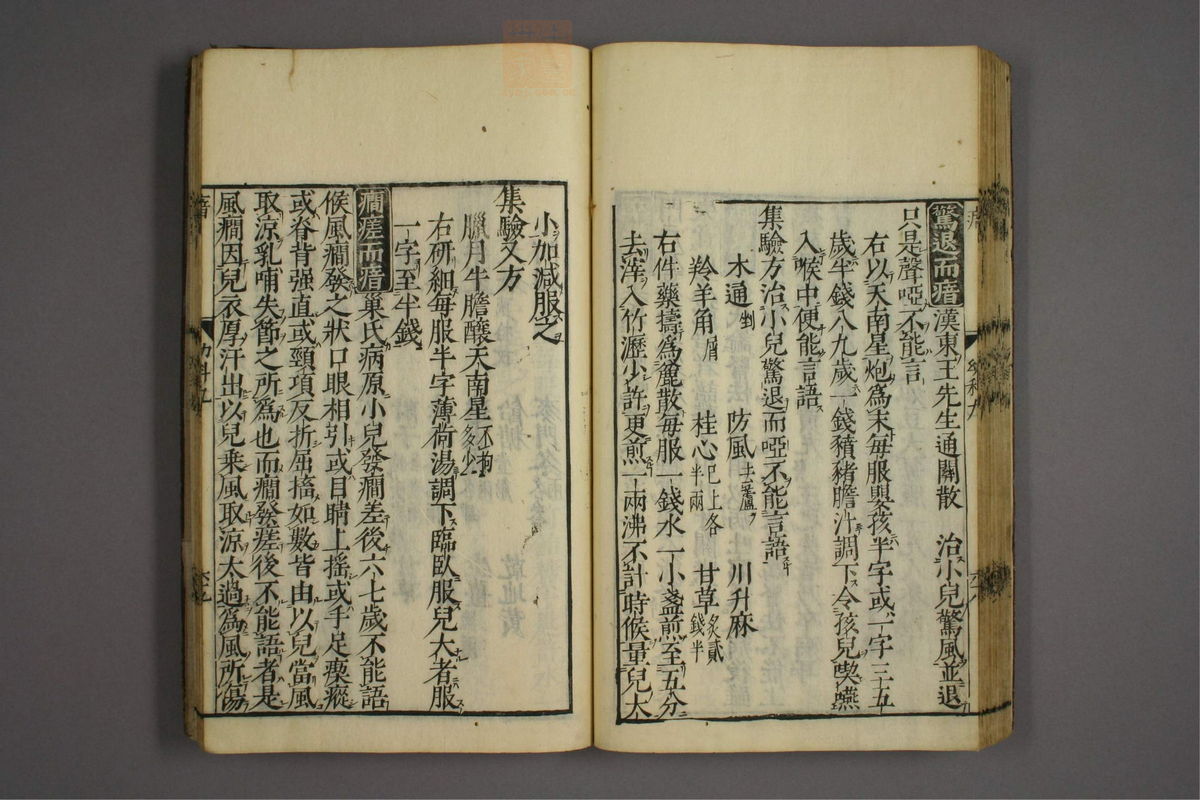 驚退而瘖漢東王先生通關散　治小兒驚風並退
只是聲啞不能言
右以天南星炮爲末每服嬰孩半字或一字三五
歲半錢八九歲一錢豶豬膽汁調下令孩兒喫嚥
入喉中便能言語
集驗方治小兒驚退而啞不能言語
木通剉　防風去蘆　川升麻
羚羊角屑　桂心已上各半兩　甘草炙貳錢半
右件藥擣爲麁散每服一錢水一小盞煎至五分
去滓入竹瀝少許更煎一兩沸不計時候量兒大
小加減服之
集驗又方
臘月牛膽釀天南星不拘多少
右研細每服半字薄荷湯調下臨臥服兒大者服
一字至半錢
癇瘥而瘖巢氏病原小兒發癇差後六七歲不能語
候風癇發之狀口眼相引或目睛上搖或手足瘈瘲
或脊背强直或頸項反折屈指如數皆由以兒當風
取涼乳哺失節之所爲也而癇發瘥後不能語者是
風癇因兒衣厚汗出以兒乗風取涼太過爲風所傷